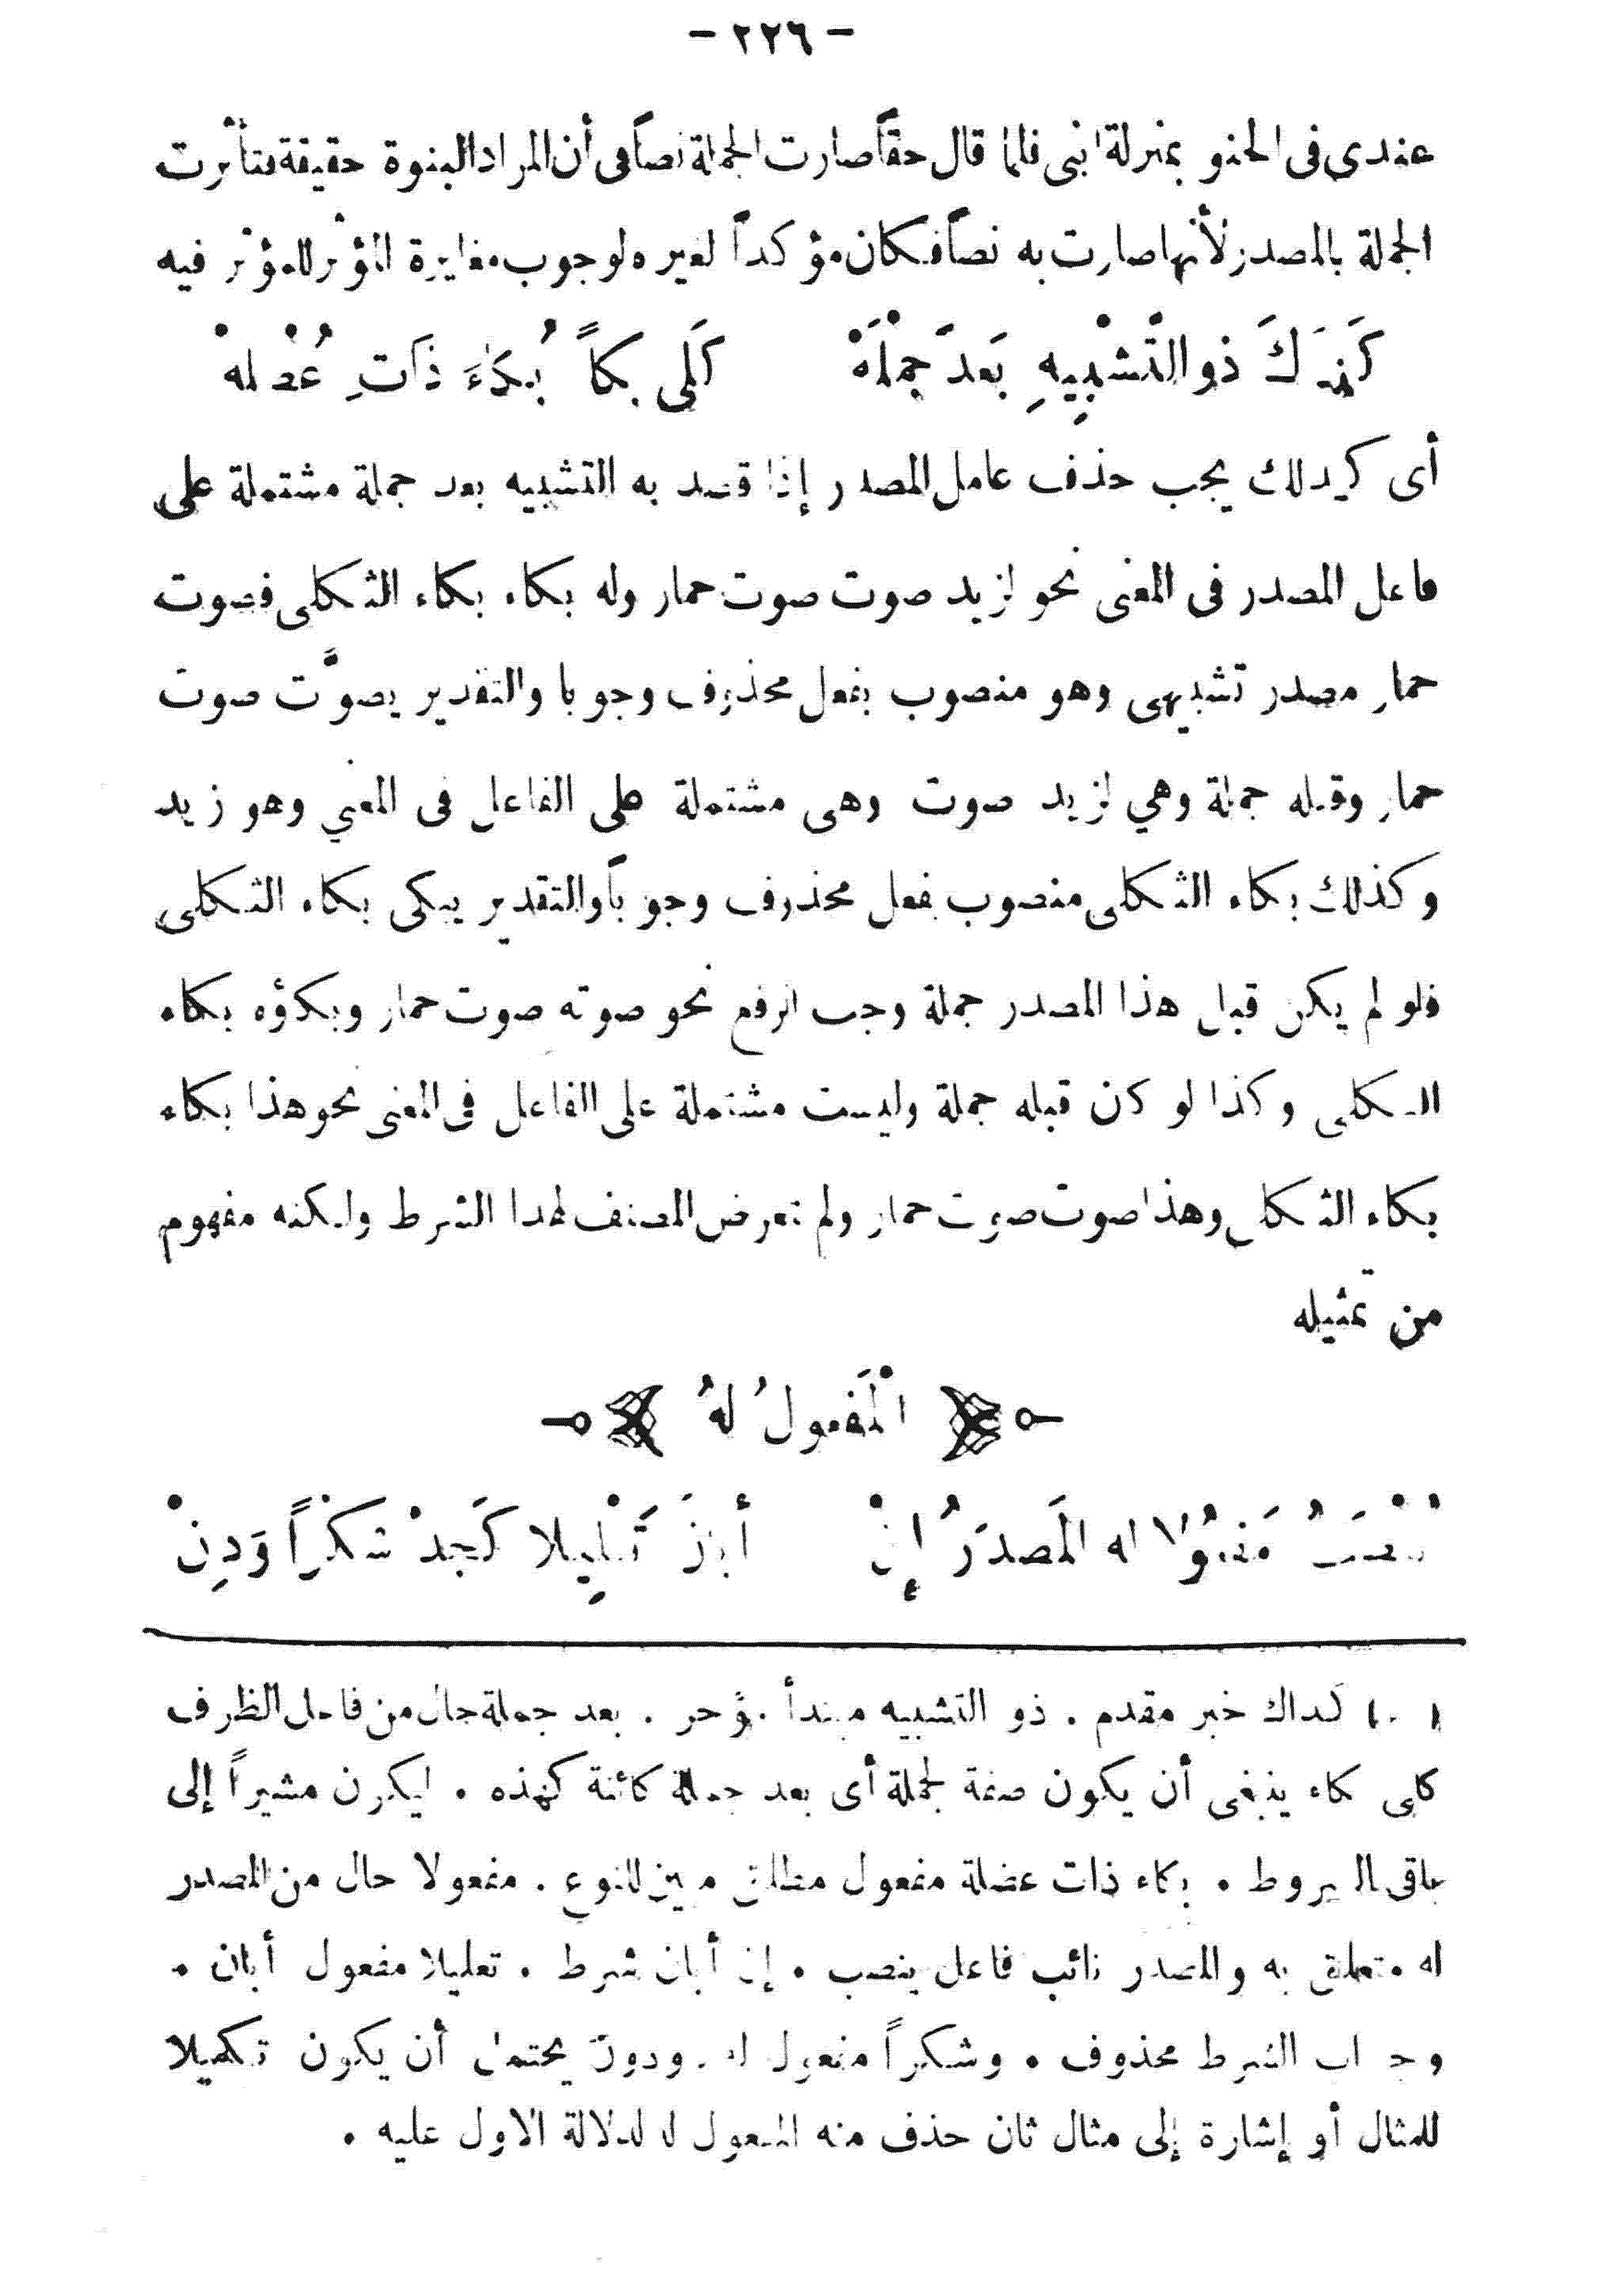 - ٢٢٦ -
عندى فى الحنو بمنزلة ابنى فلما قال حقاً صارت الجملة نصاً فى أن المراد البنوة حقيقة فتأثرت
الجملة بالمصدر لأنها صارت به نصاً فكان مؤكداً لغيره لوجوب مغايرة المؤثر للمؤثر فيه
كَذَاكَ ذو التَّشْبِيهِ بَعدَ جُمْلَهْ كَلى بكاً بُكاءَ ذَاتِ عُضْلهْ
أى كذلك يجب حذف عامل المصدر إذا قصد به التشبيه بعد جملة مشتملة على
فاعل المصدر فى المعنى نحو لزيد صوت صوت حمار وله بكاء بكاء الثكلى فصوت
حمار مصدر تشبيهى وهو منصوب بفعل محذوف وجوبا والتقدير يصوِّت صوت
حمار وقبله جملة وهي لزيد صوت وهى مشتملة على الفاعل فى المعنى وهو زيد
وكذلك بكاء الثكلى منصوب بفعل محذوف وجوباً والتقدير يبكى بكاء الثكلى
فلو لم يكن قبل هذا المصدر جملة وجب الرفع نحو صوته صوت حمار وبكؤه بكاء
الثكلى وكذا لو كن قبله جملة وليست مشتملة على الفاعل فى المعنى نحو هذا بكاء
بكاء الثكلى وهذا صوت صوت حمار ولم تعرض المصنف لهذا الشرط ولكنه مفهوم
من تمثيله
الْمَفعولُ لهُ
يُنْصَبُ مَفعُولاً له المَصدَرُ إِنْ أبانَ تَعْلِيلا كَجُدْ شكْراً وَدِنْ
(١) كذاك خبر مقدم . ذو التشبيه مبتدأ مؤخر . بعد جملة حال من فاعل الظرف
كلى بكاء ينبغى أن يكون صفة لجملة أى بعد جملة كائنة كهذه . ليكون مشيراً إلى
باقى الشروط . بكاء ذات عضلة مفعول مطلق مبين للنوع . مفعولا حال من المصدر
له متعلق به والمصدر نائب فاعل ينصب . إن أبان شرط . تعليلا مفعول أبان .
وجواب الشرط محذوف . وشكراً مفعول له . ودون يحتمل أن يكون تكميلا
للمثال أو إشارة إلى مثال ثان حذف منه المفعول له لدلالة الاول عليه .